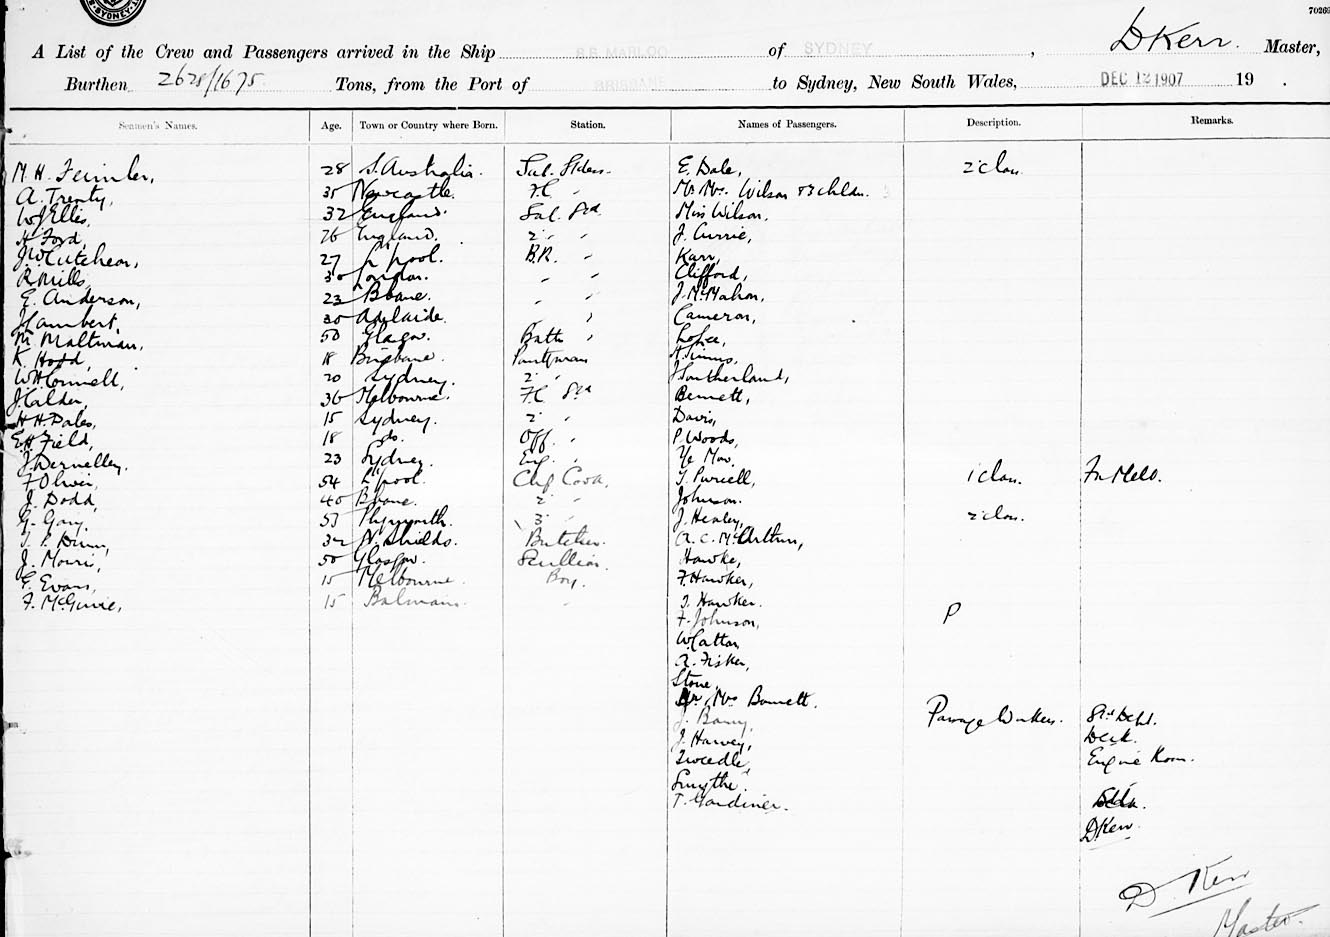 70269
SYDNEY
A List of the Crew and Passengers arrived in the Ship S.S. MARLOO of SYDNEY, D Kerr. Master,
Burthen 2628/1675 Tons, from the Port of BRISBANE to Sydney, New South Wales, DEC 12 1907 19 .
Seamen's Names. Age. Town or Country where Born. Station. Names of Passengers. Description. Remarks.
M. H. 28 S. Australia. Sal. E. Dale, 2 class
A. Trenty, 35 Newcastle. F.C. " Mr Mrs. Wilson & chldn.
W J Ellis, 32 England. Sal. Miss Wilson,
H. Ford, 26 England. 2 " " J. Currie,
J W Cutcheon, 27 L'pool. B.R. " Karr,
R Mills, 30 London. " " Clifford,
E. Anderson, 23 Bbane. " " J. McMahon,
J Lambert, 30 Adelaide. " " Cameron,
M Maltman, 50 Glasgow. Bath "
K. Hodd, 18 Brisbane. Pantryman
W H Connell, 20 Sydney. 2 " J Southerland,
J Calder, 36 Melbourne. F.C. Bennett,
H H. Dales, 15 Sydney. 2 " Davis,
E. H. Field, 18 do. Off. " P Woods,
J Dernelley. 23 Sydney. Eng. " Ye Mow.
F Oliver, 54 L'pool. Chf Cook, T. Purcell, 1 class. Fr Melb.
J. Dodd, 40 Bbane. 2 " Johnson.
G. Gary. 53 Plymouth. 3 " J. Healey, 2 class.
T. P. Dunn, N. Shields. Butcher. A. C. McArthur,
J. 50 Glasgow. Scullion. Hawke,
E. Evans, 15 Melbourne. Boy. F. Hawker,
F. McGuire, 15 Balmain. " J. Hawker.
F. Johnson, P
W Catton
A. Fisker,
Stone,
Mr, Mrs Barnett.
J. Barry, Passage Workers.
J. Harvey, Deck.
Tweedle, Engine Room.
Smythe.
T. Gardiner.
D Kerr.
D. Kerr
Master.